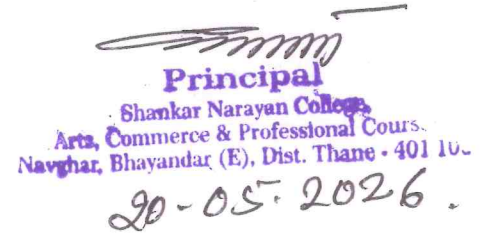 Principal
Shankar Narayan College,
Arts, Commerce & Professional Cours.
Navghar, Bhayandar (E), Dist. Thane - 401
20-05-2026.